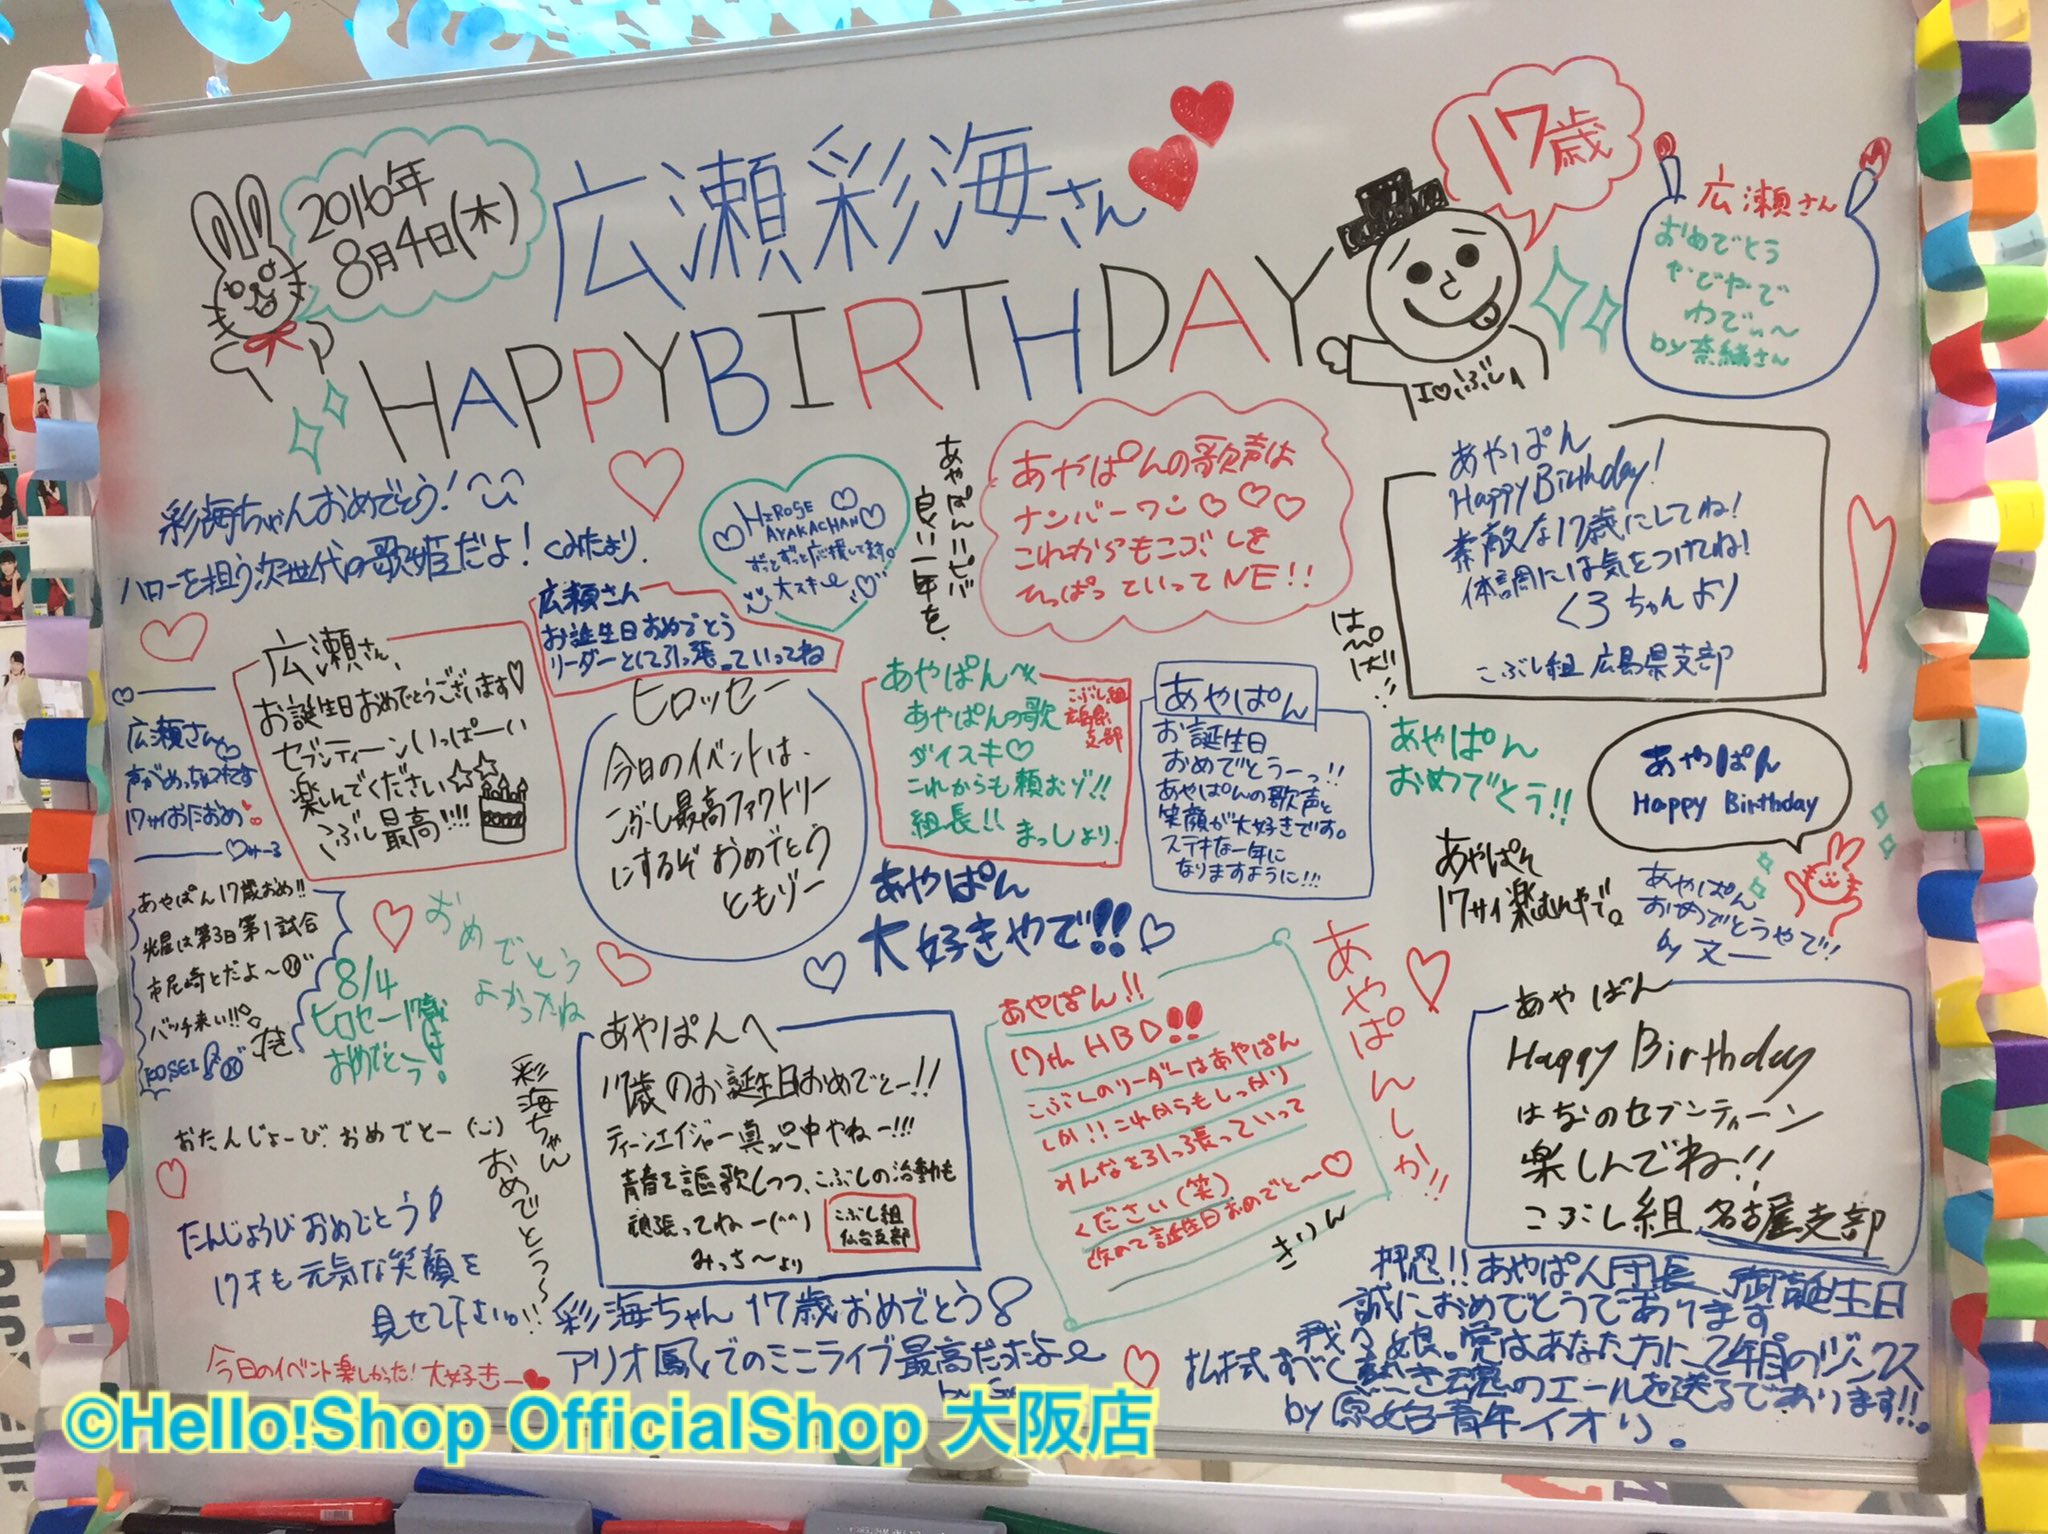 2016年
8月4日(木)
広瀬彩海さん
HAPPY BIRTHDAY
17歳
I♡こぶし
広瀬さん
おめでとう
やでやで
わでぃ〜
by奈緒さん
彩海ちゃんおめでとう!
ハローを担う次世代の歌姫だよ! くみたより.
HIROSE
AYAKACHAN
ずっとずっと応援してます。
大スキ
あやぱんハピバ
良い一年を.
あやぱんの歌声は
ナンバーワン♡♡♡
これからもこぶしを
ひっぱっていってNE!!
あやぱん
Happy Birthday!
素敵な17歳にしてね!
体調には気をつけてね!
くろちゃんより
こぶし組 広島県支部
は〜ぴば!!
広瀬さん
お誕生日おめでとう
リーダーとして引っ張っていってね
広瀬さん、
お誕生日おめでとうございます♡
セブンティーンいっぱーい
楽しんでください☆☆
こぶし最高!!!!
広瀬さん♡
声がめっちゃスキです
17サイおたおめ
♡みーる
ヒロッセー
今日のイベントは、
こぶし最高ファクトリー
にするぞ おめでとう
ともゾー
あやぱんへ
あやぱんの歌
ダイスキ♡
これからも頼むゾ!!
組長!! まっしょり.
こぶし組
広島県
支部
あやぱん
お誕生日
おめでとうーっ!!
あやぱんの歌声と
笑顔が大好きです。
ステキな一年に
なりますように!!!
あやぱん
おめでとう!!
あやぱん
Happy Birthday
あやぱん
17サイ楽しむんやで。
あやぱん
おめでとうやで!
by 文一
あやぱん
大好きやで!!♡
あやぱん17歳おめ!!
光星は第3日第1試合
市尼崎とだよ〜
バッチ来い!!
KOSEI
8/4
ヒロセー17歳
おめでとう!
おめでとう
よかったね
彩海ちゃん
おめでとう〜!!
あやぱんへ
17歳のお誕生日おめでとー!!
ティーンエイジャー真っ只中やねー!!!
青春を謳歌しつつ、こぶしの活動も
頑張ってねー(^^)
みっち〜より
こぶし組
仙台支部
あやぱん!!
17th HBD!!
こぶしのリーダーはあやぱん
しか!! これからもしっかり
みんなを引っ張っていって
ください(笑)
改めて誕生日おめでと〜♡
きりん
あやぱんしか!!
あやぱん
Happy Birthday
はなのセブンティーン
楽しんでね!!
こぶし組 名古屋支部
おたんじょーび おめでとー
たんじょうび おめでとう!
17才も元気な笑顔を
見せて下さい。
今日のイベント楽しかった! 大好きー♥
彩海ちゃん 17歳おめでとう
アリオ鳳でのミニライブ最高だったよ
押忍!! あやぱん団長、御誕生日
誠におめでとうであります
我々娘。党はあなた方に2年目のジンクス
払拭すべく熱き魂のエールを送るであります!!
by 原始青年イオリ。
©Hello!Shop OfficialShop 大阪店